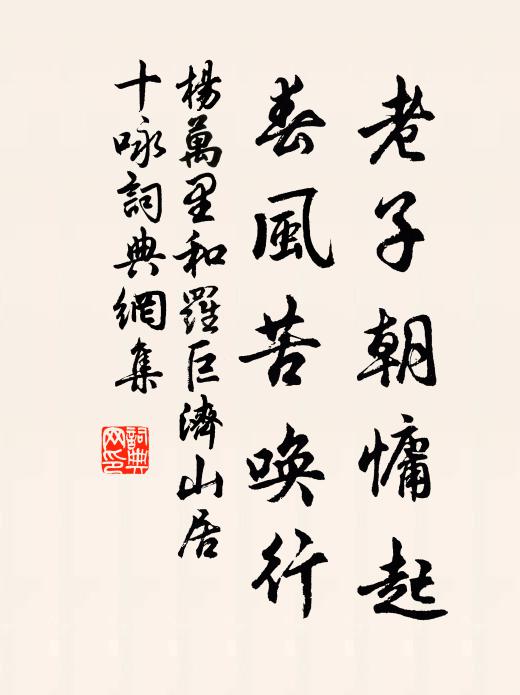 老子朝慵起
春風苦喚行
楊萬里和羅巨濟山居
十咏詞典網集
詞典网印